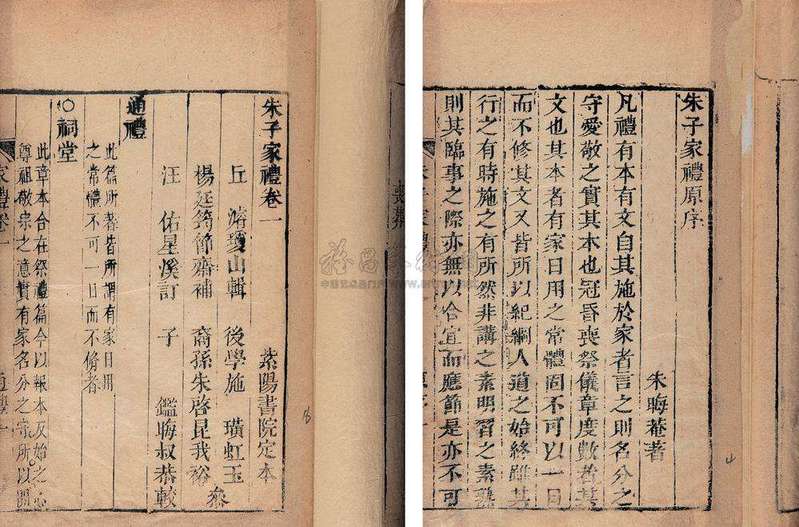 朱子家禮原序
朱晦菴著
凡禮有本有文自其施於家者言之則名分之
守愛敬之實其本也冠昏喪祭儀章度數者其
文也其本者有家日用之常體固不可以一日
而不修其文又皆所以紀綱人道之始終雖其
行之有時施之有所然非講之素明習之素熟
則其臨事之際亦無以合宜而應節是亦不可
朱子家禮卷一
紫陽書院定本
丘濬瓊山輯 後學施璜虹玉
楊廷筠節齋補 裔孫朱啓昆我裕 叅
汪佑星溪訂 子鑑晦叔恭較
通禮
此篇所著皆所謂有家日用
之常體不可一日而不脩者
祠堂
此章本合在祭禮篇今以報本反始之心
尊祖敬宗之意實有家名分之守所以開
家禮卷一
通禮一